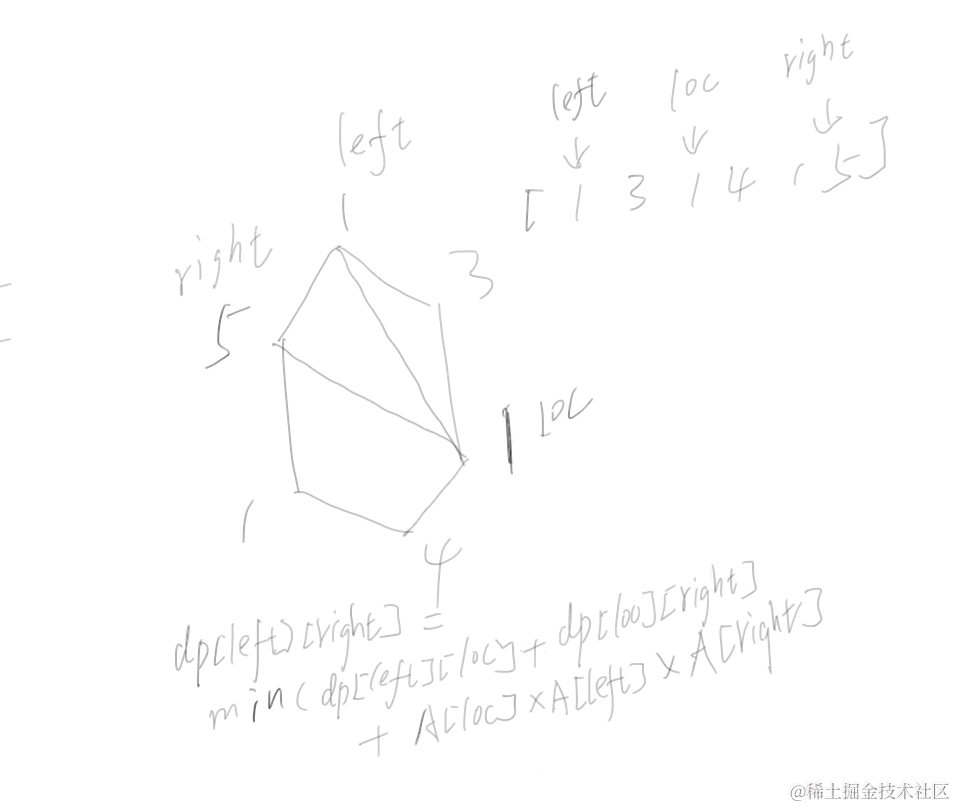 left loc right
[ 1 3 1 4 1 5 ]
left
1
right
5
3
1 loc
1
4
dp[left][right] =
min( dp[left][loc] + dp[loc][right]
+ A[loc] × A[left] × A[right]
@稀土掘金技术社区